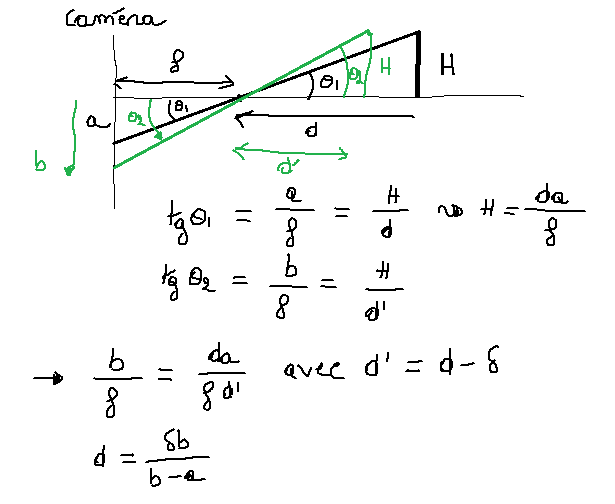 caméra
f
H
θ₂
H
θ₁
a
θ₁
θ₂
d
b
d'
tgθ₁ = a/f = H/d ⇝ H = da/f
tgθ₂ = b/f = H/d'
→ b/f = da/fd' avec d' = d - δ
d = δb/b-a